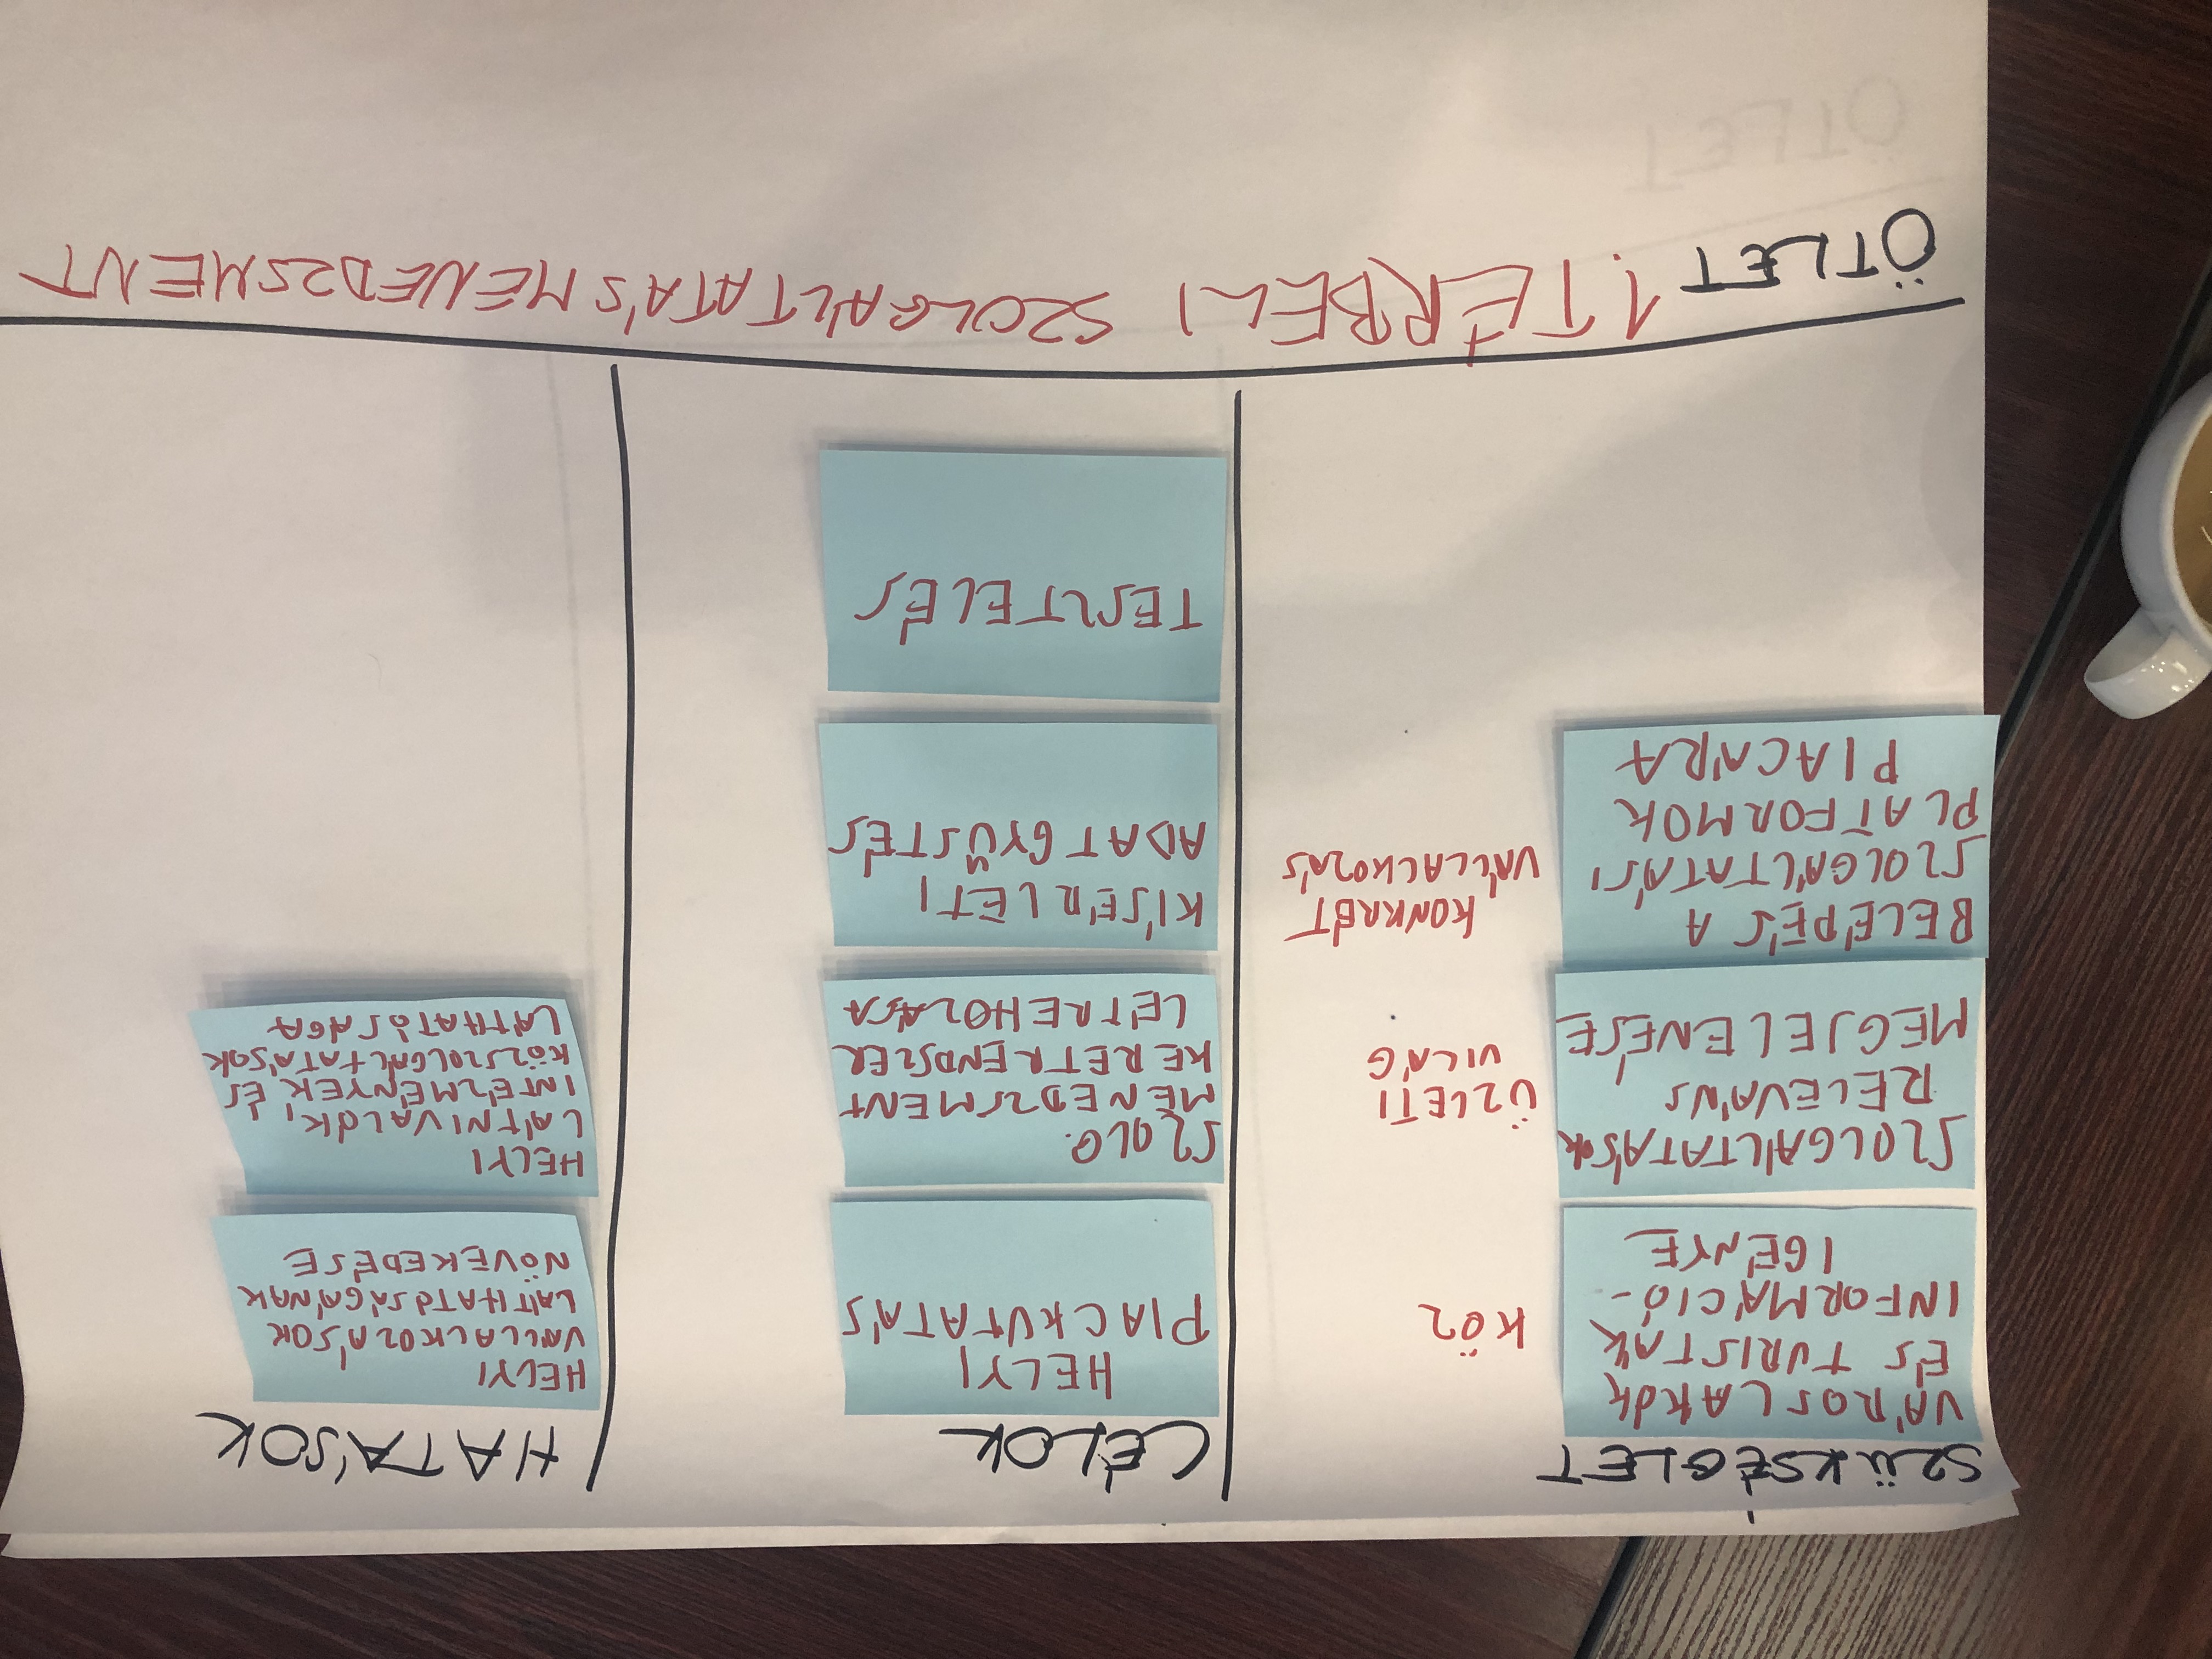 SZÜKSÉGLET
VÁROSLAKÓK
ÉS TURISTÁK
INFORMÁCIÓ-
IGÉNYE
KÖZ
SZOLGÁLTATÁSOK
RELEVÁNS
MEGJELENÉSE
ÜZLETI
VILÁG
BELÉPÉS A
SZOLGÁLTATÁSI
PLATFORMOK
PIACÁRA
KONKRÉT
VÁLLALKOZÁS
CÉLOK
HELYI
PIACKUTATÁS
SZOLG.
MENEDZSMENT
KERETRENDSZER
LÉTREHOZÁSA
KÍSÉRLETI
ADATGYŰJTÉS
TESZTELÉS
HATÁSOK
HELYI
VÁLLALKOZÁSOK
LÁTHATÓSÁGÁNAK
NÖVEKEDÉSE
HELYI
LÁTNIVALÓK,
INTÉZMÉNYEK ÉS
KÖZSZOLGÁLTATÁSOK
LÁTHATÓSÁGA
ÖTLET
1 TÉRBELI SZOLGÁLTATÁSMENEDZSMENT
ÖTLET